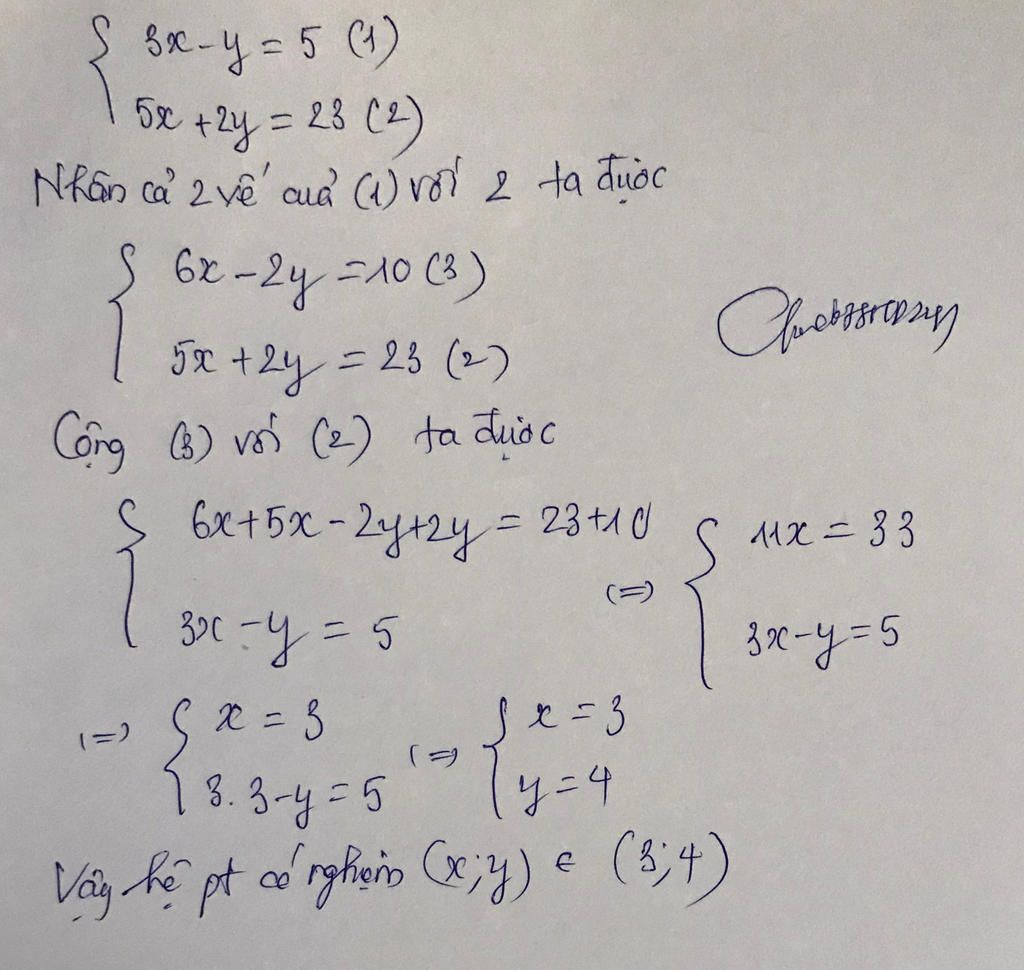 3x - y = 5 (1)
5x + 2y = 23 (2)
Nhân cả 2 vế của (1) với 2 ta được
6x - 2y = 10 (3)
5x + 2y = 23 (2)
Cộng (3) với (2) ta được
6x + 5x - 2y + 2y = 23 + 10
3x - y = 5
(=)
11x = 33
3x - y = 5
(=)
x = 3
3.3 - y = 5
(=)
x = 3
y = 4
Vậy hệ pt có nghiệm (x;y) ∈ (3;4)